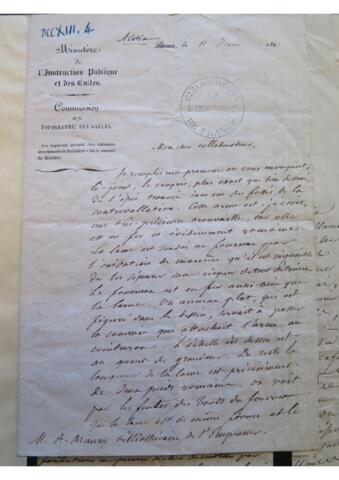 DCCXIII. 4
Alesia
Paris, le 11 Juin 186
Ministère
de
l'Instruction Publique
et des Cultes.
Commission
de la
TOPOGRAPHIE DES GAULES.
BIBLIOTHÈQUE
DE L'INSTITUT
DE FRANCE
Monsieur et collaborateur,
Je remplis ma promesse en vous envoyant,
ci-joint, le croquis, plus exact que bien dessiné,
de l'épée trouvée dans un des fossés de la
contrevallation. Cette arme est, je crois,
une très précieuse trouvaille, car elle
est en fer et évidemment romaine.
La lame est soudée au fourreau par
l'oxidation de manière qu'il est impossible
de les séparer sans risquer de tout détruire.
Le fourreau est en fer aussi bien que
la lame. Un anneau plat, qui est
figuré dans le dessin, servait à passer
la courroie qui attachait l'arme au
ceinturon. L'échelle du dessin est
au quart de grandeur. Du reste la
longueur de la lame est précisément
de deux pieds romains. On voit
par les fentes des bords du fourreau
que la lame est de même forme et le
M. A. Maury bibliothécaire de l'Empereur.